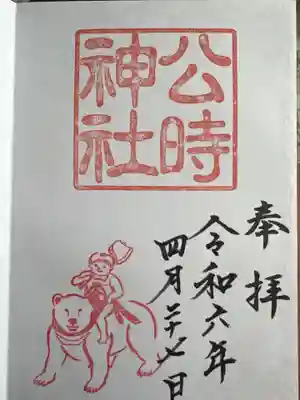 奉拝
公時
神社
令和六年
四月二十七日